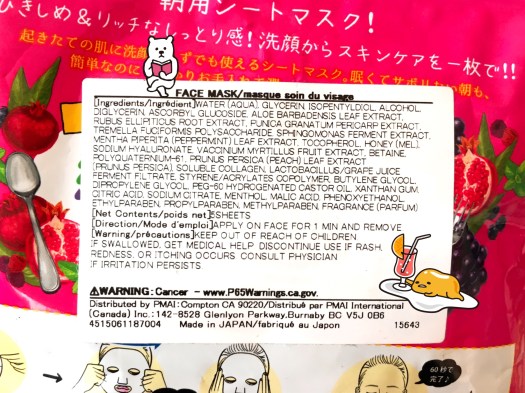 朝用シートマスク!
ひきしめ&リッチなしっとり感!洗顔からスキンケアを一枚で!!
起きたての肌に洗顔 ずでも使えるシートマスク。眠くてサボりたい朝も、
簡単なのに
FACE MASK/masque soin du visage
[Ingredients/Ingrédient]WATER (AQUA), GLYCERIN, ISOPENTYLDIOL, ALCOHOL,
DIGLYCERIN, ASCORBYL GLUCOSIDE, ALOE BARBADENSIS LEAF EXTRACT,
RUBUS ELLIPTICUS ROOT EXTRACT, PUNICA GRANATUM PERICARP EXTRACT,
TREMELLA FUCIFORMIS POLYSACCHARIDE, SPHINGOMONAS FERMENT EXTRACT,
MENTHA PIPERITA (PEPPERMINT) LEAF EXTRACT, TOCOPHEROL, HONEY (MEL),
SODIUM HYALURONATE, VACCINIUM MYRTILLUS FRUIT EXTRACT, BETAINE,
POLYQUATERNIUM-61, PRUNUS PERSICA (PEACH) LEAF EXTRACT
(PRUNUS PERSICA), SOLUBLE COLLAGEN, LACTOBACILLUS/GRAPE JUICE
FERMENT FILTRATE, STYRENE/ACRYLATES COPOLYMER, BUTYLENE GLYCOL,
DIPROPYLENE GLYCOL, PEG-60 HYDROGENATED CASTOR OIL, XANTHAN GUM,
CITRIC ACID, SODIUM CITRATE, MENTHOL, MALIC ACID, PHENOXYETHANOL,
ETHYLPARABEN, PROPYLPARABEN, METHYLPARABEN, FRAGRANCE (PARFUM)
[Net Contents/poids net]5SHEETS
[Direction/Mode d'emploi]APPLY ON FACE FOR 1 MIN AND REMOVE
[Warning/précautions]KEEP OUT OF REACH OF CHILDREN.
IF SWALLOWED, GET MEDICAL HELP. DISCONTINUE USE IF RASH,
REDNESS, OR ITCHING OCCURS. CONSULT PHYSICIAN
IF IRRITATION PERSISTS.
⚠WARNING: Cancer - www.P65Warnings.ca.gov.
Distributed by PMAI:Compton CA 90220/Distribué par PMAI International
(Canada) Inc.:142-8528 Glenlyon Parkway,Burnaby BC V5J 0B6
4515061187004 Made in JAPAN/fabriqué au Japon 15643
60秒で
完了♪